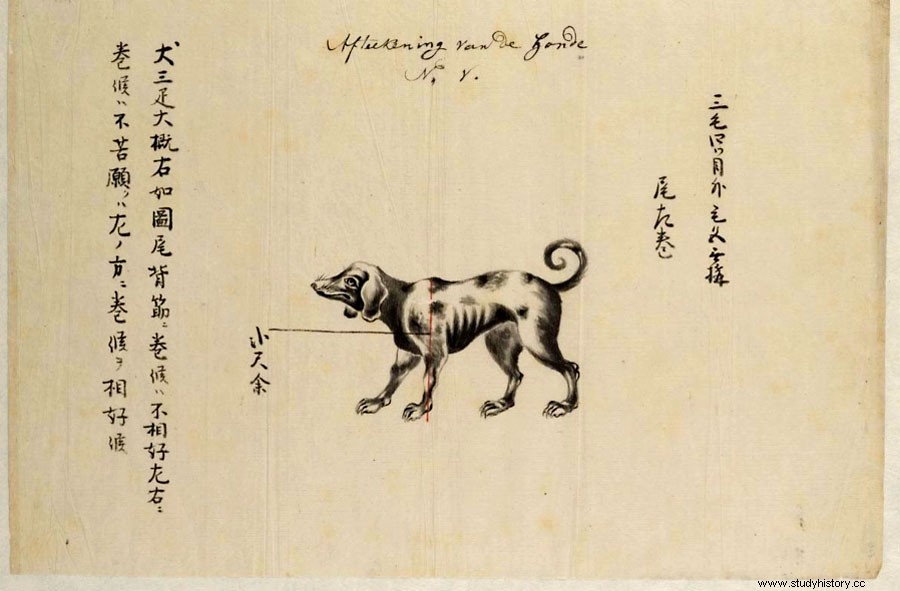 Afteekening van de Honde
No. V.
三毛四ツ目外毛
尾左巻
尺余
犬三疋大概右如圖尾背筋ニ巻候ハ不相好左右ニ
巻候ハ不苦願クハ左ノ方ニ巻候ヲ相好候
www.studyhistory.cc